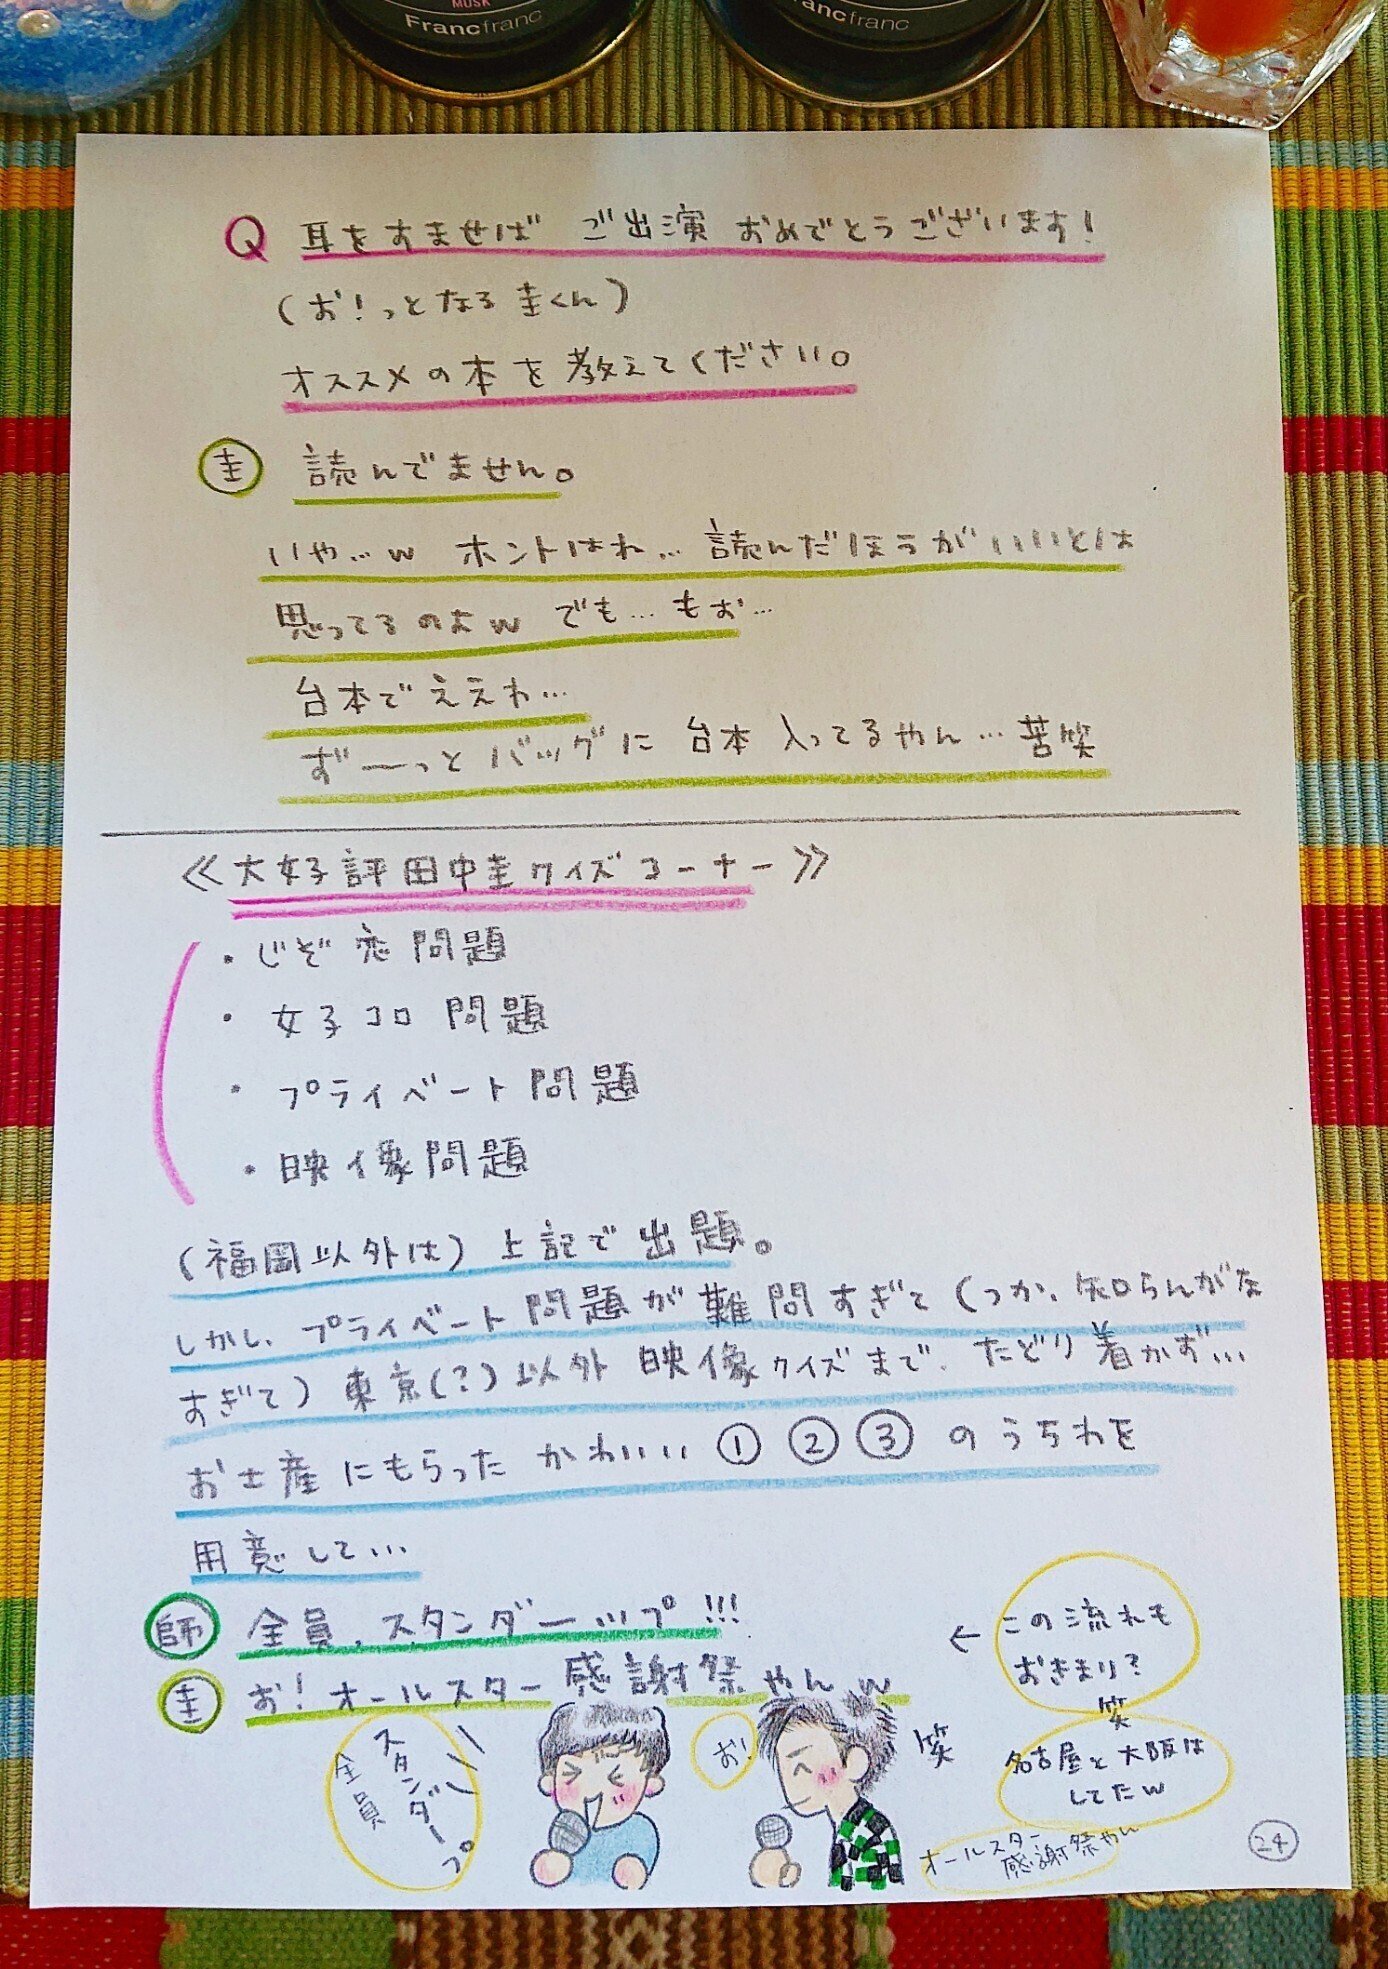 MUSK
Francfranc
Francfranc
Q 耳をすませば ご出演 おめでとうございます!
(お!っとなる圭くん)
オススメの本を教えてください。
圭 読んでません。
いや…w ホントはね… 読んだほうがいいとは
思ってるのよw でも… もぉ…
台本でええわ…
ず〜っとバッグに 台本 入ってるやん… 苦笑
≪大好評田中圭クイズコーナー≫
・じぞ恋問題
・女子コロ 問題
・プライベート問題
・映像問題
(福岡以外は) 上記で出題。
しかし、プライベート問題が難問すぎて (つか、知らんがな
すぎて) 東京(?)以外 映像クイズまで、たどり着かず…
お土産にもらった かわいい ① ② ③ のうちわを
用意して…
師 全員、スタンダーップ!!!
圭 お! オールスター感謝祭やんw
← この流れも
おきまり?
笑
名古屋と大阪は
してたw
全員
スタンダープ
お!
笑
オールスター
感謝祭やん
24